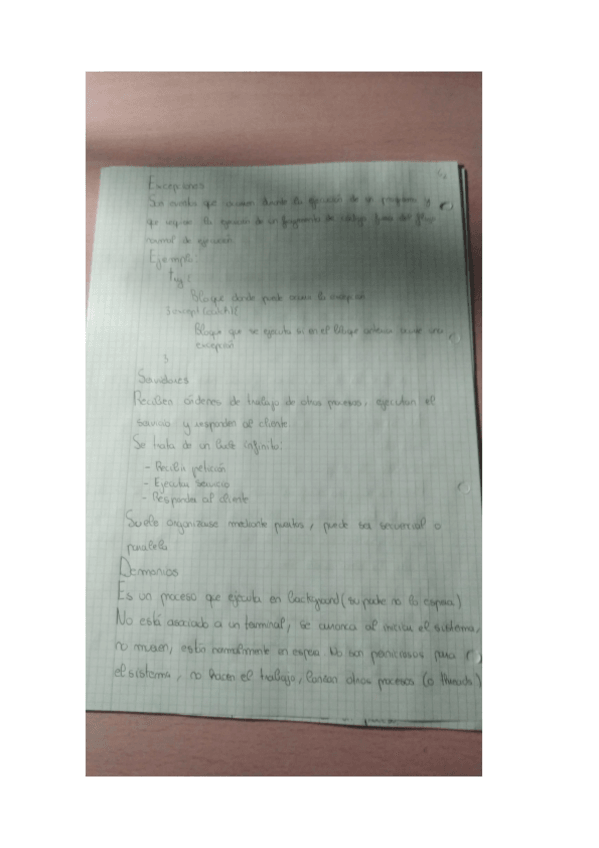 Excepciones
Son eventos que ocurren durante la ejecución de un programa y
que requiere la ejecución de un fragmento de código fuera del flujo
normal de ejecución.
Ejemplo:
try {
Bloque donde puede ocurrir la excepción
} except
Bloque que se ejecuta si en el bloque anterior ocurre una
excepción
}
Servidores
Reciben órdenes de trabajo de otros procesos, ejecutan el
servicio y responden al cliente.
Se trata de un bucle infinito:
- Recibir petición
- Ejecutar servicio
- Responder al cliente
Suele organizarse mediante puertos, puede ser secuencial o
paralelo
Demonios
Es un proceso que ejecuta en background (su padre no lo espera)
No está asociado a un terminal, se arranca al iniciar el sistema,
no mueren, están normalmente en espera. No son perniciosos para
el sistema, no hacen el trabajo, lanzan otros procesos (o threads)